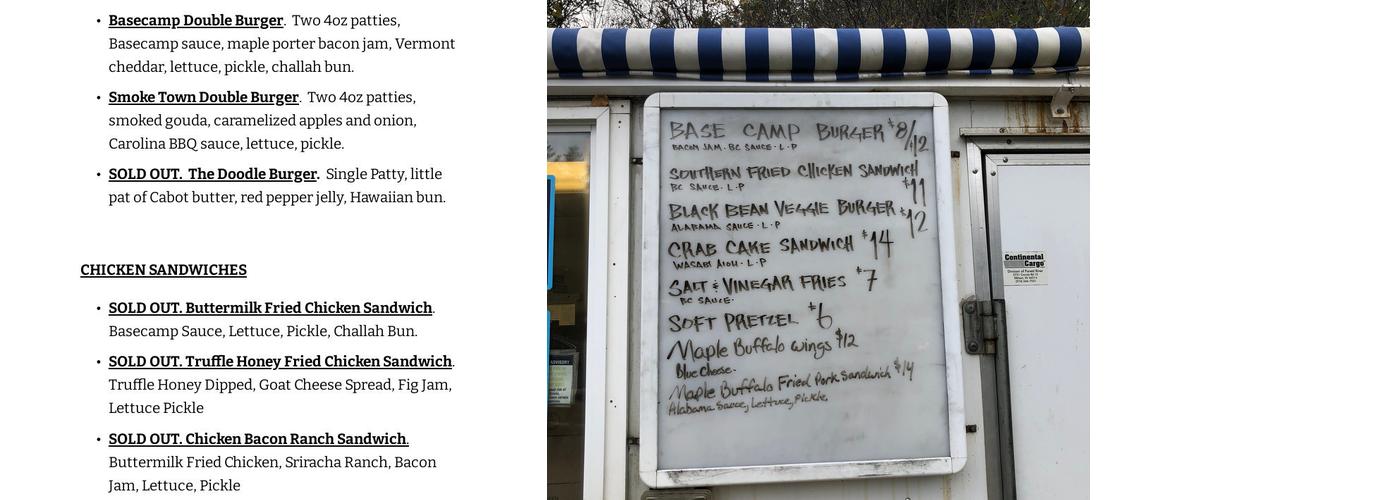 • Basecamp Double Burger.  Two 4oz patties,
Basecamp sauce, maple porter bacon jam, Vermont
cheddar, lettuce, pickle, challah bun.
• Smoke Town Double Burger.  Two 4oz patties,
smoked gouda, caramelized apples and onion,
Carolina BBQ sauce, lettuce, pickle.
• SOLD OUT.  The Doodle Burger.  Single Patty, little
pat of Cabot butter, red pepper jelly, Hawaiian bun.
CHICKEN SANDWICHES
• SOLD OUT. Buttermilk Fried Chicken Sandwich.
Basecamp Sauce, Lettuce, Pickle, Challah Bun.
• SOLD OUT. Truffle Honey Fried Chicken Sandwich.
Truffle Honey Dipped, Goat Cheese Spread, Fig Jam,
Lettuce Pickle
• SOLD OUT. Chicken Bacon Ranch Sandwich.
Buttermilk Fried Chicken, Sriracha Ranch, Bacon
Jam, Lettuce, Pickle
BASE CAMP BURGER $8/12
BACON JAM · BC SAUCE · L · P
SOUTHERN FRIED CHICKEN SANDWICH
BC SAUCE · L · P $11
BLACK BEAN VEGGIE BURGER $12
ALABAMA SAUCE · L · P
CRAB CAKE SANDWICH $14
WASABI AIOLI · L · P
SALT & VINEGAR FRIES $7
BC SAUCE ·
SOFT PRETZEL $6
Maple Buffalo wings $12
Blue Cheese.
Maple Buffalo Fried Pork Sandwich $14
Alabama Sauce, Lettuce, Pickle,
Continental
Cargo